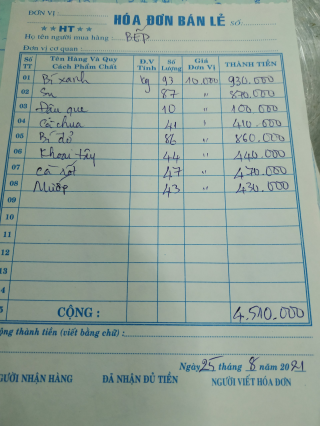 ĐƠN VỊ:
HÓA ĐƠN BÁN LẺ SỐ:
**HT**
Họ tên người mua hàng: BẾP
Đơn vị cơ quan:
Số TT Tên Hàng Và Quy Cách Phẩm Chất Đ.V Tính Số Lượng Giá Đơn Vị THÀNH TIỀN
01 Bí xanh kg 93 10.000 930.000
02 Su 87 " 870.000
03 Đậu que 10 " 100.000
04 Cà chua 41 " 410.000
05 Bí đỏ 86 " 860.000
06 Khoai tây 44 " 440.000
07 Cà rốt 47 " 470.000
08 Mướp 43 " 430.000
09
10
11
12
13
14
5
CỘNG: 4.510.000
ộng thành tiền (viết bằng chữ):
Ngày 25 tháng 8 năm 2021
GƯỜI NHẬN HÀNG ĐÃ NHẬN ĐỦ TIỀN NGƯỜI VIẾT HÓA ĐƠN